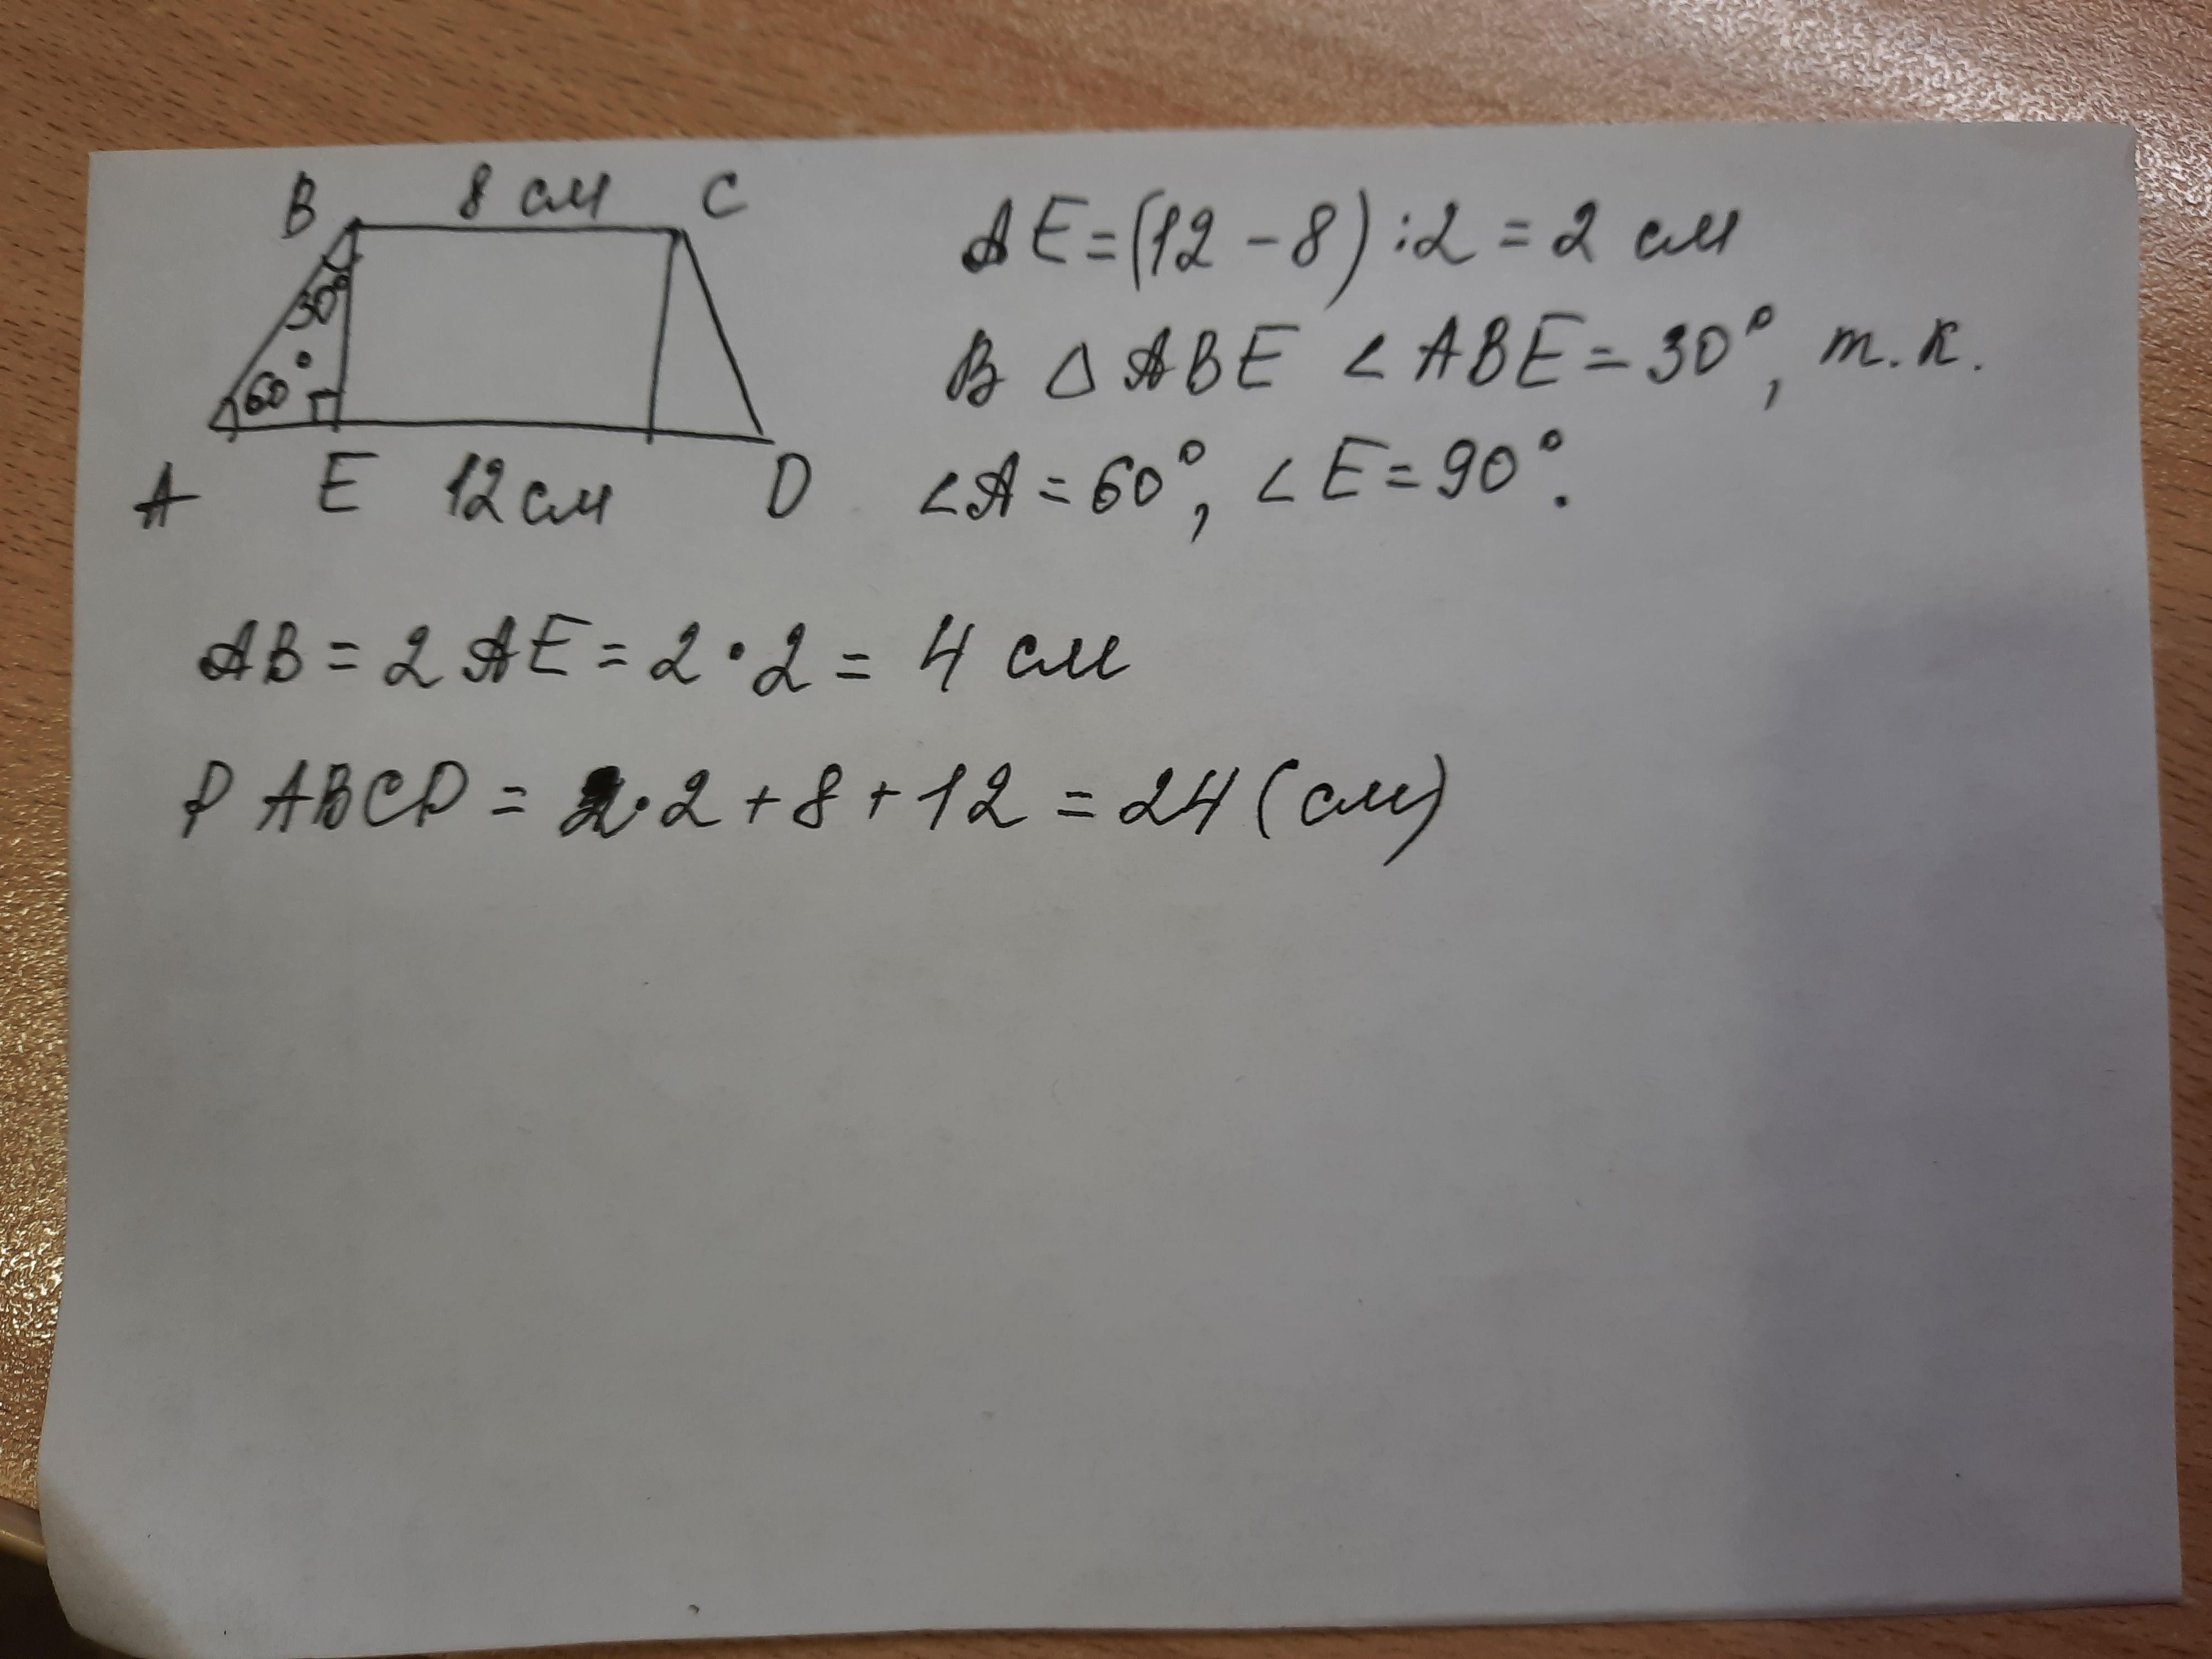 B 8 см C
30°
60°
A E 12 см D
AE = (12 - 8) : 2 = 2 см
В △ ABE ∠ ABE = 30°, т.к.
∠A = 60°, ∠E = 90°.
AB = 2 AE = 2 · 2 = 4 см
P ABCD = 2 · 2 + 8 + 12 = 24 (см)